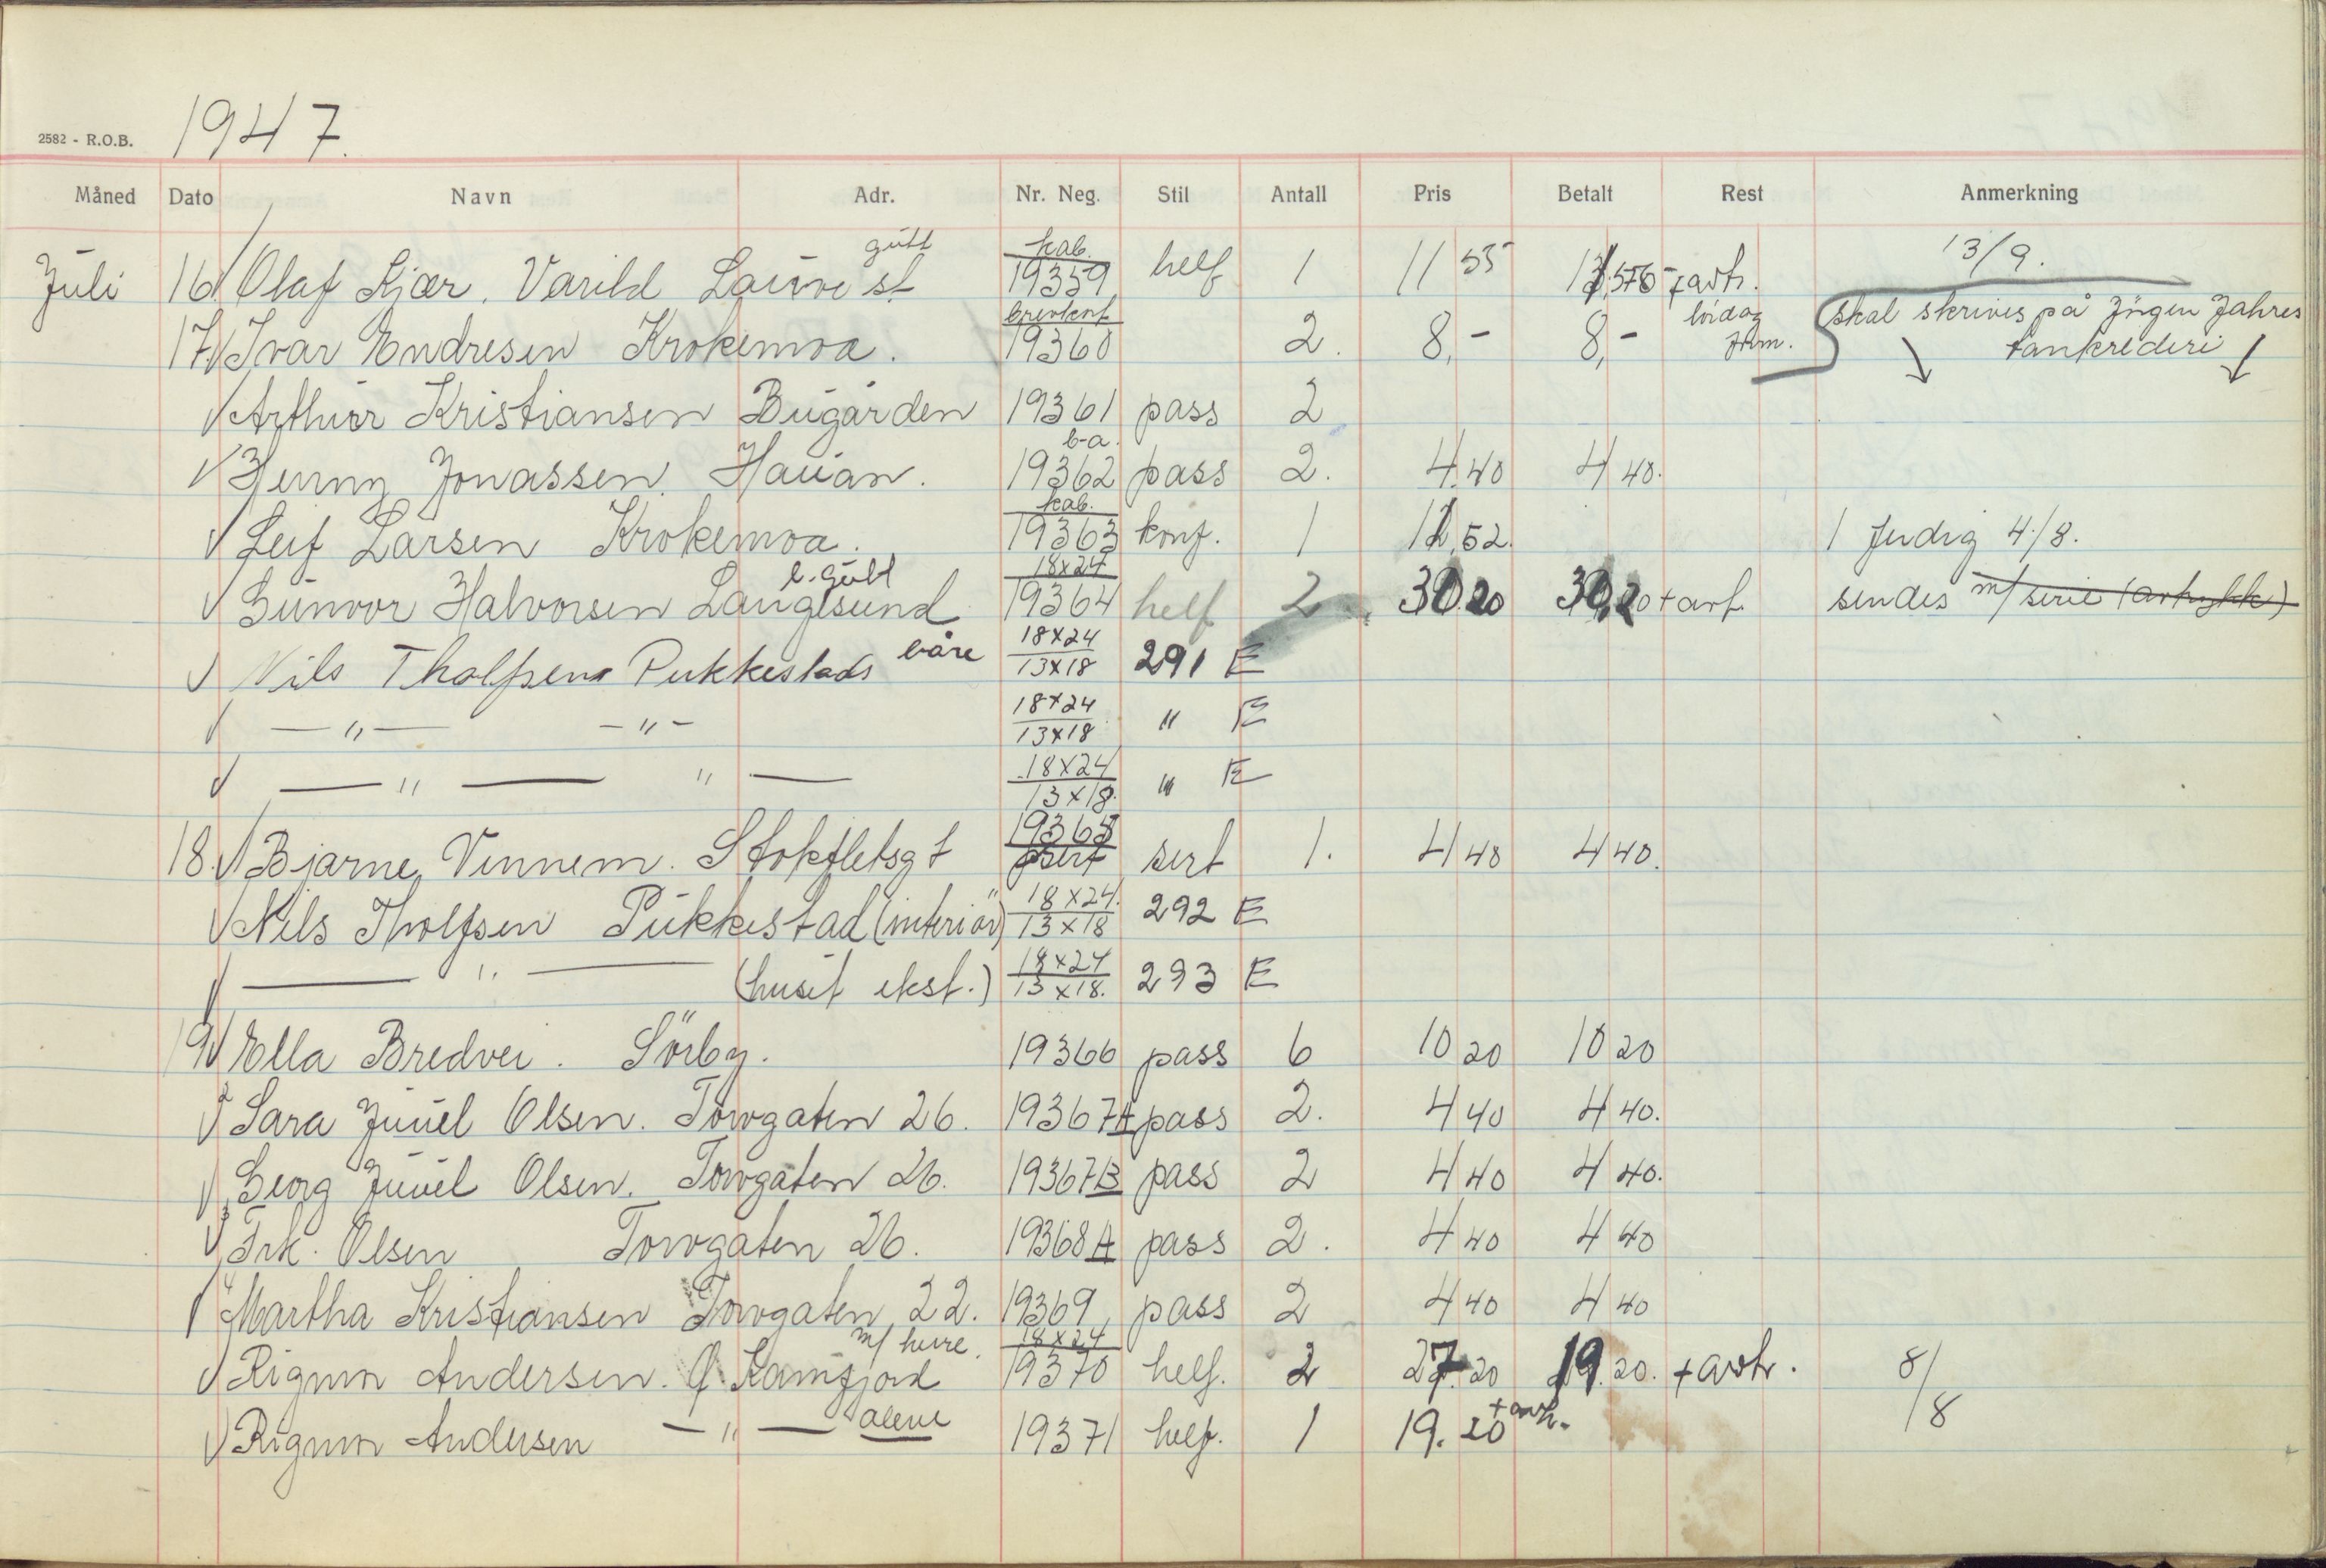 1947.
2582 - R.O.B.
Måned Dato Navn Adr. Nr. Neg. Stil Antall Pris Betalt Rest Anmerkning
Juli 16 Olaf Kjær. Varild Lauve st gutt kab. 19359 helf 1 11 55 + avtr. 13/9.
17 Ivar Endresen Krokemoa. 19360 2. 8,- 8,- lördag skal skrives på Jörgen Jahres tankrederi
Arthur Kristiansen Bugården 19361 pass 2
Henny Jonassen. Hauan. b-a. 19362 pass 2. 4.40 4 40.
Leif Larsen Krokemoa. kab. 19363 konf. 1 52. 1 ferdig 4/8.
Gunvor Halvorsen Langesund 18x24 19364 helf 2 30 20 30,20 + avt sendes m/ serie (avtrykk)
Nils Tholfsen Pukkestads båre 18x24 13x18 291 E
— " — — " — 18x24 13x18 " E
— " — " — 18x24 13x18. " E
18. Bjarne Vinnem. Stokfletsgt 19365 sert 1. 4 40 4 40.
Nils Tholfsen Pukkestad (interiör) 18x24. 13x18 292 E
— " — (huset ekst.) 18x24 13x18. 293 E
19 Ella Bredvei. Sörby. 19366 pass 6 10 20 10 20
Sara Juuel Olsen. Torvgaten 26. 19367A pass 2. 4 40 4 40.
Georg Juuel Olsen. Torvgaten 26. 19367B pass 2 4 40 4 40.
Frk. Olsen Torvgaten 26. 19368A pass 2. 4 40 4 40
Martha Kristiansen Torvgaten 22. 19369 pass 2 4 40 4 40
Rigmor Andersen. Ø. Kamfjord 18x24 19370 helf. 2 27.20 19.20. + avtr. 8/8
Rigmor Andersen — " — alene 19371 helf. 1 19.20